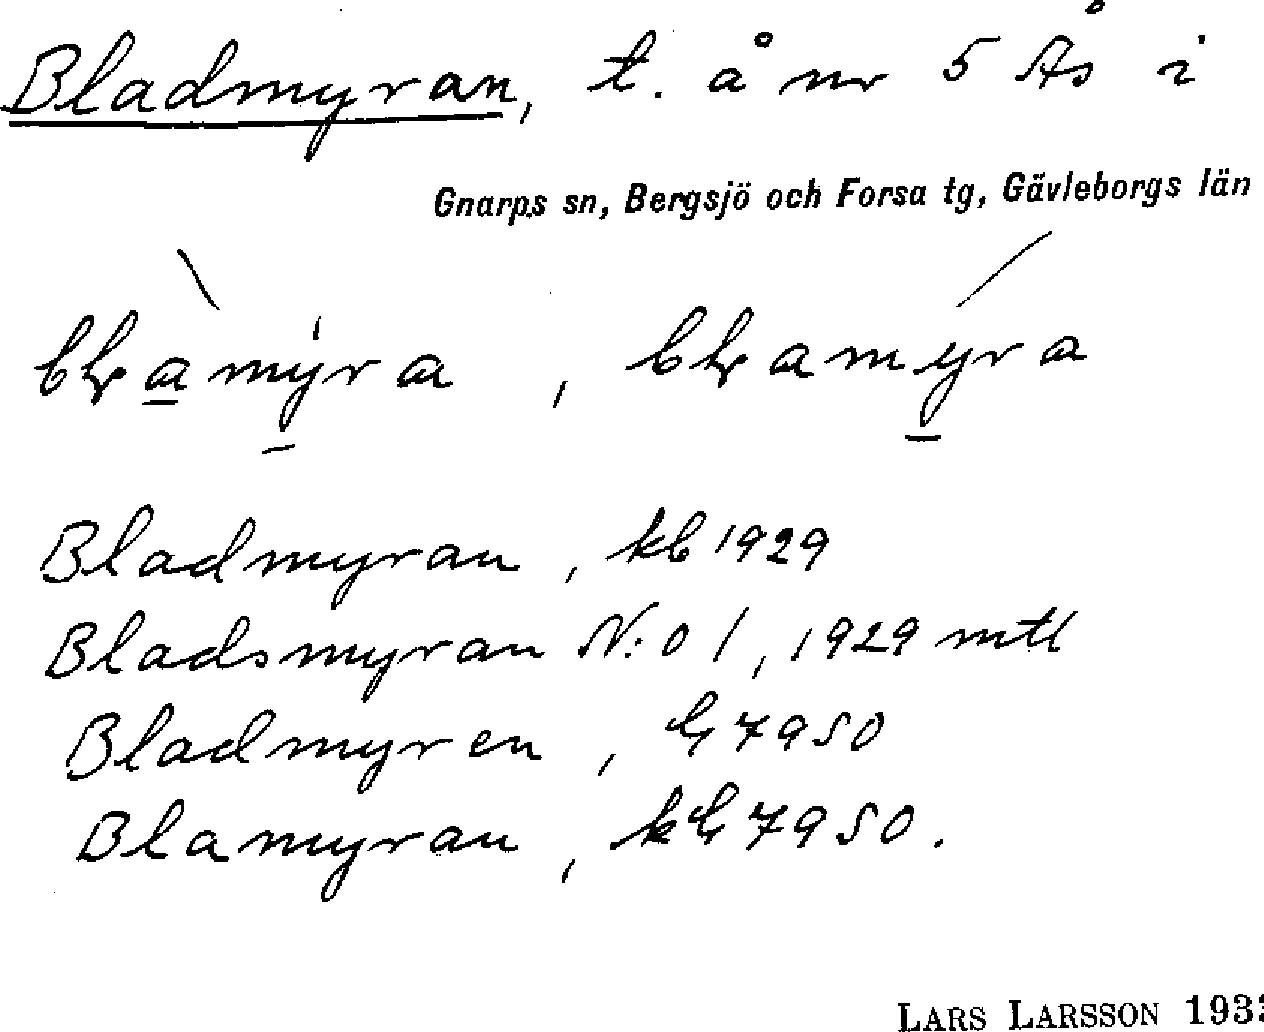 Bladmyran, t. å nr 5 Ås i
Gnarps sn, Bergsjö och Forsa tg, Gävleborgs län
Bladmyran, kb 1929
Bladsmyran N:o 1, 1929 mtl
Bladmyren, G 7950
Blamyran, kG 7950.
LARS LARSSON 193